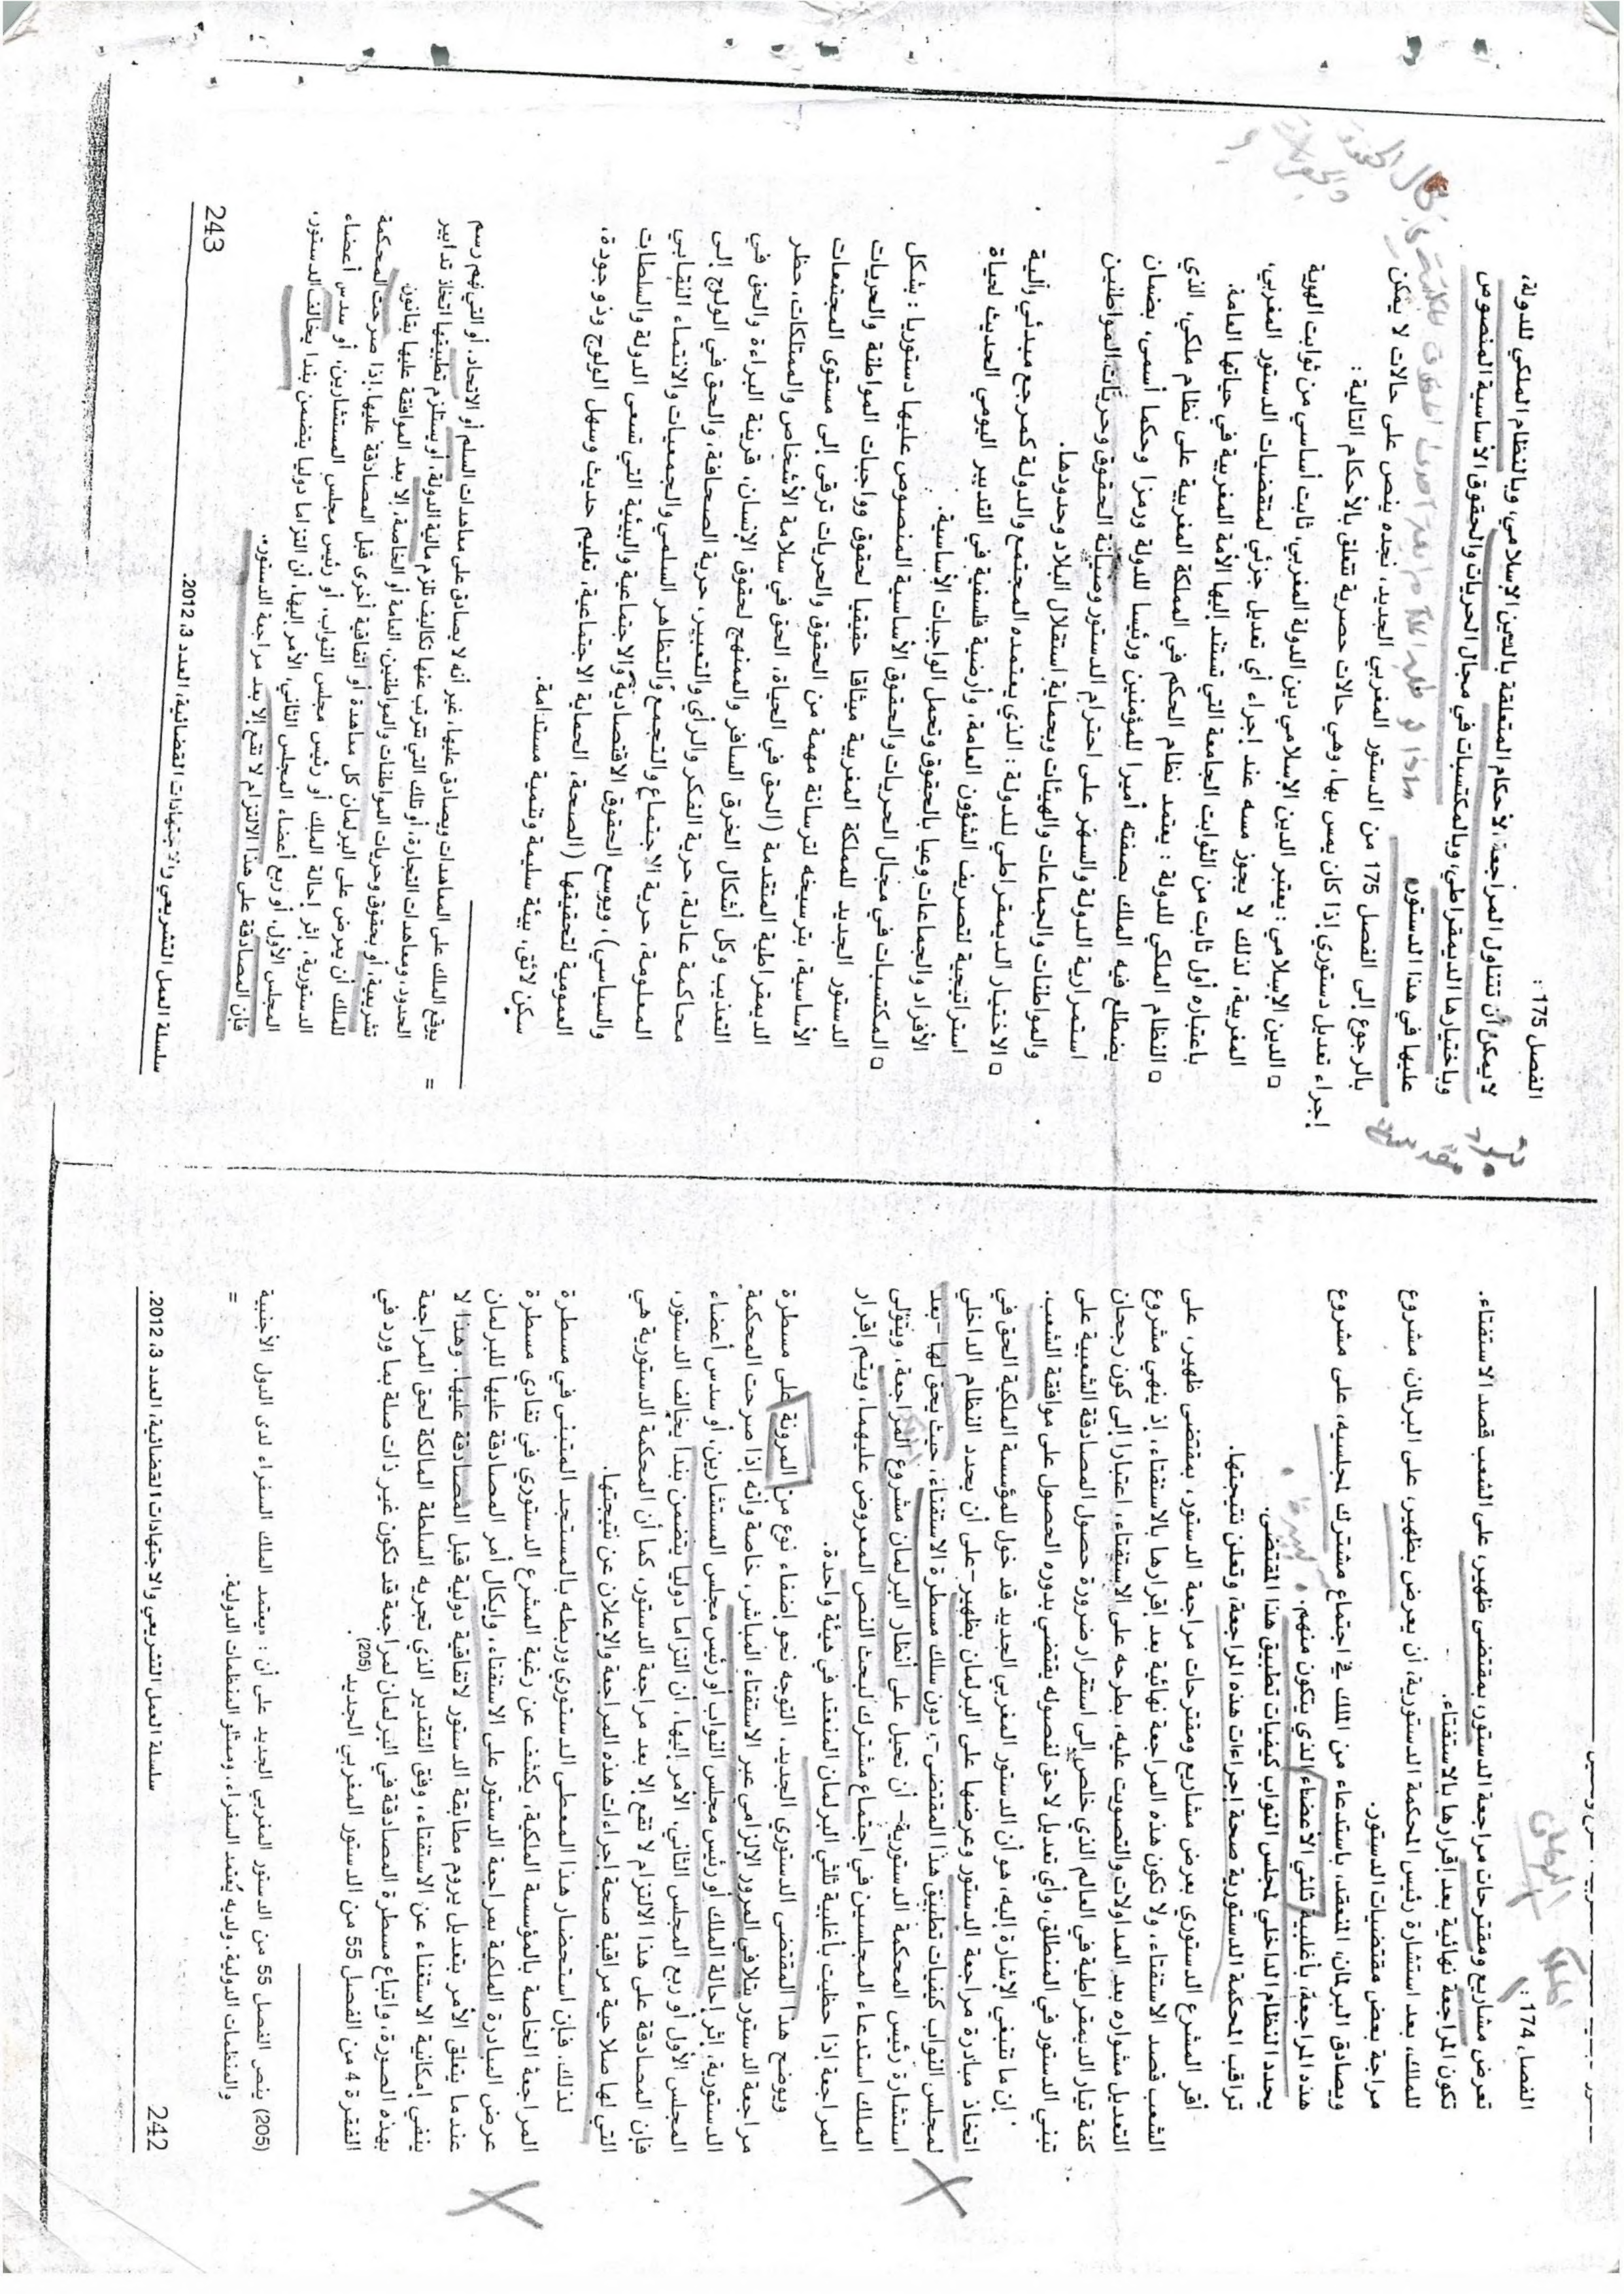 الفصل 174 :
تعرض مشاريع ومقترحات مراجعة الدستور، بمقتضى ظهير، على الشعب قصد الاستفتاء.
تكون المراجعة نهائية بعد إقرارها بالاستفتاء.
للملك، بعد استشارة رئيس المحكمة الدستورية، أن يعرض بظهير، على البرلمان، مشروع
مراجعة بعض مقتضيات الدستور.
ويصادق البرلمان، المنعقد، باستدعاء من الملك في اجتماع مشترك لمجلسيه، على مشروع
هذه المراجعة، بأغلبية ثلثي الأعضاء الذي يتكون منهم.
يحدد النظام الداخلي لمجلس النواب كيفيات تطبيق هذا المقتضى.
تراقب المحكمة الدستورية صحة إجراءات هذه المراجعة، وتعلن نتيجتها.
أقر المشرع الدستوري بعرض مشاريع ومقترحات مراجعة الدستور، بمقتضى ظهير، على
الشعب قصد الاستفتاء، ولا تكون هذه المراجعة نهائية بعد إقرارها بالاستفتاء، إذ ينهي مشروع
التعديل مشواره بعد المداولات والتصويت عليه، بطرحه على الاستفتاء، اعتبارا إلى كون رجحان
كفة تيار الديمقراطية في العالم الذي خلص إلى استقرار ضرورة حصول المصادقة الشعبية على
تبني الدستور في المنطلق، وأي تعديل لاحق لفصوله يقتضي بدوره الحصول على موافقة الشعب.
إن ما تنبغي الإشارة إليه، هو أن الدستور المغربي الجديد قد خول للمؤسسة الملكية الحق في
اتخاذ مبادرة مراجعة الدستور وعرضها على البرلمان بظهير- على أن يحدد النظام الداخلي
لمجلس النواب كيفيات تطبيق هذا المقتضى-، دون سلك مسطرة الاستفتاء، حيث يحق لها -بعد
استشارة رئيس المحكمة الدستورية- أن تحيل على أنظار البرلمان مشروع المراجعة، ويتولى
الملك استدعاء المجلسين في اجتماع مشترك لبحث النص المعروض عليهما، ويتم إقرار
المراجعة إذا حظيت بأغلبية ثلثي البرلمان المنعقد في هيئة واحدة.
ويوضح هذا المقتضى الدستوري الجديد، التوجه نحو إضفاء نوع من المرونة على مسطرة
مراجعة الدستور بتلافي المرور الإلزامي عبر الاستفتاء المباشر، خاصة وأنه إذا صرحت المحكمة
الدستورية، إثر إحالة الملك أو رئيس مجلس النواب أو رئيس مجلس المستشارين، أو سدس أعضاء
المجلس الأول أو ربع المجلس الثاني، الأمر إليها، أن التزاما دوليا يتضمن بندا يخالف الدستور،
فإن المصادقة على هذا الالتزام لا تقع إلا بعد مراجعة الدستور، كما أن المحكمة الدستورية هي
التي لها صلاحية مراقبة صحة إجراءات هذه المراجعة والإعلان عن نتيجتها.
لذلك، فإن استحضار هذا المعطى الدستوري وربطه بالمستجد المتبنى في مسطرة
المراجعة الخاصة بالمؤسسة الملكية، يكشف عن رغبة المشرع الدستوري في تفادي مسطرة
عرض المبادرة الملكية بمراجعة الدستور على الاستفتاء، وإيكال أمر المصادقة عليها للبرلمان
عندما يتعلق الأمر بتعديل يروم مطابقة الدستور لاتفاقية دولية قبل المصادقة عليها. وهذا لا
ينفي إمكانية الاستغناء عن الاستفتاء، وفق التقدير الذي تجريه السلطة المالكة لحق المراجعة
بهذه الصورة، واتباع مسطرة المصادقة في البرلمان لمراجعة قد تكون غير ذات صلة بما ورد في
الفقرة 4 من الفصل 55 من الدستور المغربي الجديد (205).
(205) ينص الفصل 55 من الدستور المغربي الجديد على أن : «يعتمد الملك السفراء لدى الدول الأجنبية
والمنظمات الدولية، ولديه يُعتمد السفراء، وممثلو المنظمات الدولية.
=
242
سلسلة العمل التشريعي والاجتهادات القضائية، العدد 3، 2012.
الفصل 175 :
لا يمكن أن تتناول المراجعة، الأحكام المتعلقة بالدين الإسلامي، وبالنظام الملكي للدولة،
وباختيارها الديمقراطي، وبالمكتسبات في مجال الحريات والحقوق الأساسية المنصوص
عليها في هذا الدستور.
بالرجوع إلى الفصل 175 من الدستور المغربي الجديد، نجده ينص على حالات لا يمكن
إجراء تعديل دستوري إذا كان يمس بها، وهي حالات حصرية تتعلق بالأحكام التالية :
▫ الدين الإسلامي : يعتبر الدين الإسلامي دين الدولة المغربي، ثابت أساسي من ثوابت الهوية
المغربية، لذلك لا يجوز مسه عند إجراء أي تعديل جزئي لمقتضيات الدستور المغربي،
باعتباره أول ثابت من الثوابت الجامعة التي تستند إليها الأمة المغربية في حياتها العامة.
▫ النظام الملكي للدولة : يعتمد نظام الحكم في المملكة المغربية على نظام ملكي، الذي
يضطلع فيه الملك بصفته أميرا للمؤمنين ورئيسا للدولة ورمزا وحكما أسمى، بضمان
استمرارية الدولة والسهر على احترام الدستور وصيانة الحقوق وحريات المواطنين
والمواطنات والجماعات والهيئات وبحماية استقلال البلاد وحدودها.
▫ الاختيار الديمقراطي للدولة : الذي يعتمده المجتمع والدولة كمرجع مبدئي وآلية
استراتيجية لتصريف الشؤون العامة، وأرضية فلسفية في التدبير اليومي الحديث لحياة
الأفراد والجماعات وعيا بالحقوق وتحمل الواجبات الأساسية.
▫ المكتسبات في مجال الحريات والحقوق الأساسية المنصوص عليها دستوريا : بشكل
الدستور الجديد للمملكة المغربية ميثاقا حقيقيا لحقوق وواجبات المواطنة والحريات
الأساسية، بترسيخه لترسانة مهمة من الحقوق والحريات ترقى إلى مستوى المجتمعات
الديمقراطية المتقدمة (الحق في الحياة، الحق في سلامة الأشخاص والممتلكات، حظر
التعذيب وكل أشكال الخرق السافر والممنهج لحقوق الإنسان، قرينة البراءة والحق في
محاكمة عادلة، حرية الفكر والرأي والتعبير، حرية الصحافة، والحق في الولوج إلى
المعلومة، حرية الاجتماع والتجمع والتظاهر السلمي والجمعيات والانتماء النقابي
والسياسي)، ويوسع الحقوق الاقتصادية والاجتماعية والبيئية التي تسعى الدولة والسلطات
العمومية لتحقيقها (الصحة، الحماية الاجتماعية، تعليم حديث وسهل الولوج وذو جودة،
سكن لائق، بيئة سليمة وتنمية مستدامة.
=
يوقع الملك على المعاهدات ويصادق عليها، غير أنه لا يصادق على معاهدات السلم أو الاتحاد، أو التي تهم رسم
الحدود، ومعاهدات التجارة، أو تلك التي تترتب عنها تكاليف تلزم مالية الدولة، أو يستلزم تطبيقها اتخاذ تدابير
تشريعية، أو بحقوق وحريات المواطنات والمواطنين، العامة أو الخاصة، إلا بعد الموافقة عليها بقانون
للملك أن يعرض على البرلمان كل معاهدة أو اتفاقية أخرى قبل المصادقة عليها. إذا صرحت المحكمة
الدستورية، إثر إحالة الملك أو رئيس مجلس النواب، أو رئيس مجلس المستشارين، أو سدس أعضاء
المجلس الأول، أو ربع أعضاء المجلس الثاني، الأمر إليها، أن التزاما دوليا يتضمن بندا يخالف الدستور،
فإن المصادقة على هذا الالتزام لا تقع إلا بعد مراجعة الدستور».
سلسلة العمل التشريعي والاجتهادات القضائية، العدد 3، 2012.
243